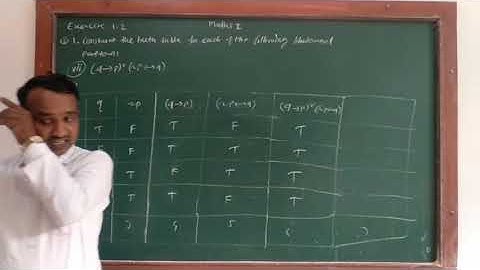 Exercise 1.2 Maths I
Q 1. Construct the truth table for each of the following statement
patterns.
vii) (q→p) ∨ (~p↔q)
q ~p (q→p) (~p↔q) (q→p) ∨ (~p↔q)
T F T F T
T F T T T
F T F T T
F T T F T
3 4 5